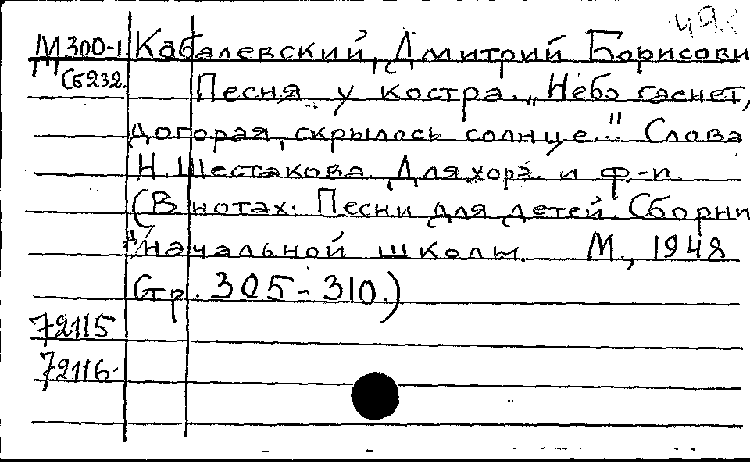 49
М 300-1 Кабалевский, Дмитрий Борисови
Сб232. Песня у костра. „Небо гаснет,
догорая, скрылось солнце.." Слова
Н. Шестакова. Для хора и ф.-п.
(В нотах: Песни для детей. Сборни
д/начальной школы. М., 1948
Стр. 305-310.)
72115
72116.